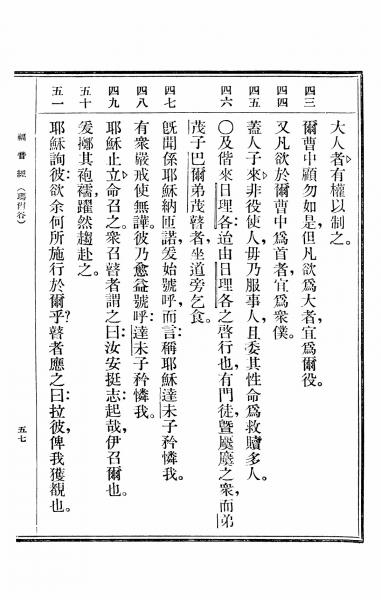 大人者有權以制之。
四三 爾曹中顧勿如是，但凡欲爲大者，宜爲爾役。
四四 又凡欲於爾曹中爲首者，宜爲衆僕。
四五 蓋人子來，非役使人，毋乃服事人，且委其性命爲救贖多人。
四六 〇及偕來日理各，迨由日理各之啓行也，有門徒曁䴢䴢之衆，而弟
茂子巴爾弟茂瞽者，坐道旁乞食。
四七 旣聞係耶穌納匝諾，爰始號呼，而言：稱耶穌達未子矜憐我。
四八 有衆嚴戒使無譁。彼乃愈益號呼：達未子矜憐我。
四九 耶穌止立，命召之。衆召瞽者謂之曰：汝安挺志，起哉，伊召爾也。
五十 爰擲其袍襦，躍然趨赴之。
五一 耶穌詢彼：欲余何所施行於爾乎？瞽者應之曰：拉彼俾我獲覩也。
福音經（瑪爾谷）
五七